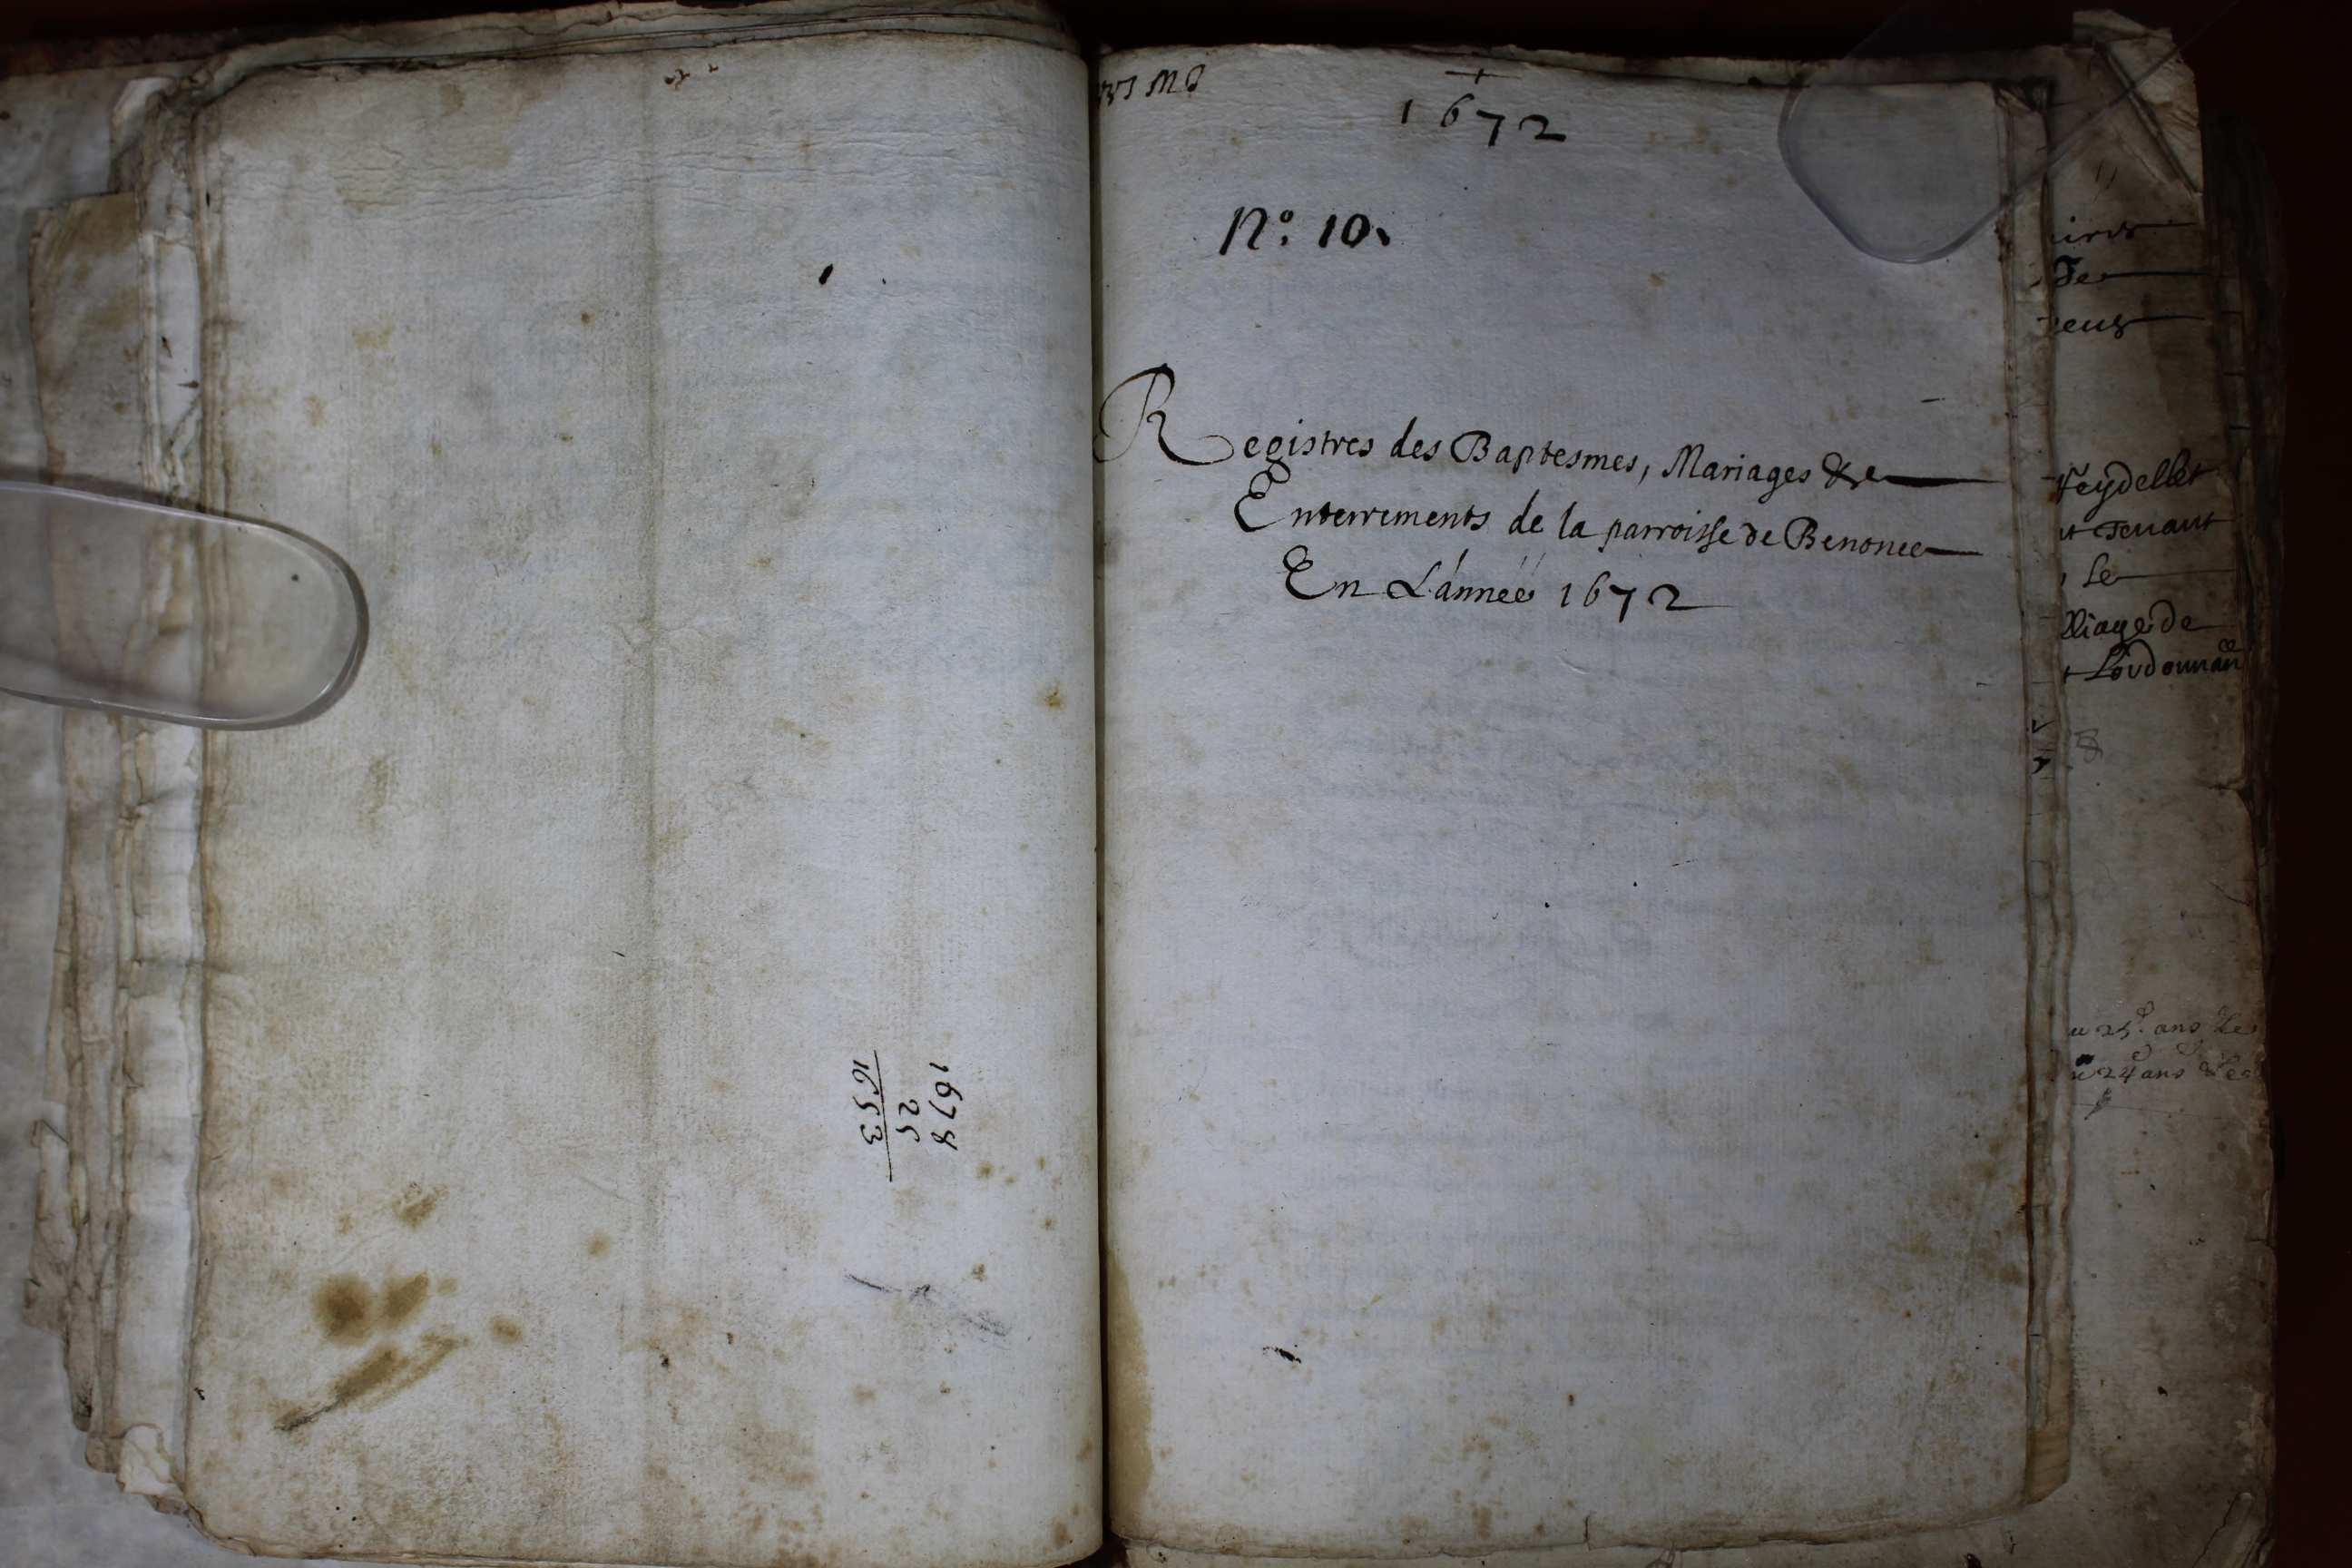 1678
25
1653
1672
N.º 10.
Registres des Baptesmes, Mariages &
Enterrements de la parroisse de Benonce
En L'année 1672
Feydellet
et Tenant
Le
Mariage de
25 ans
24 ans